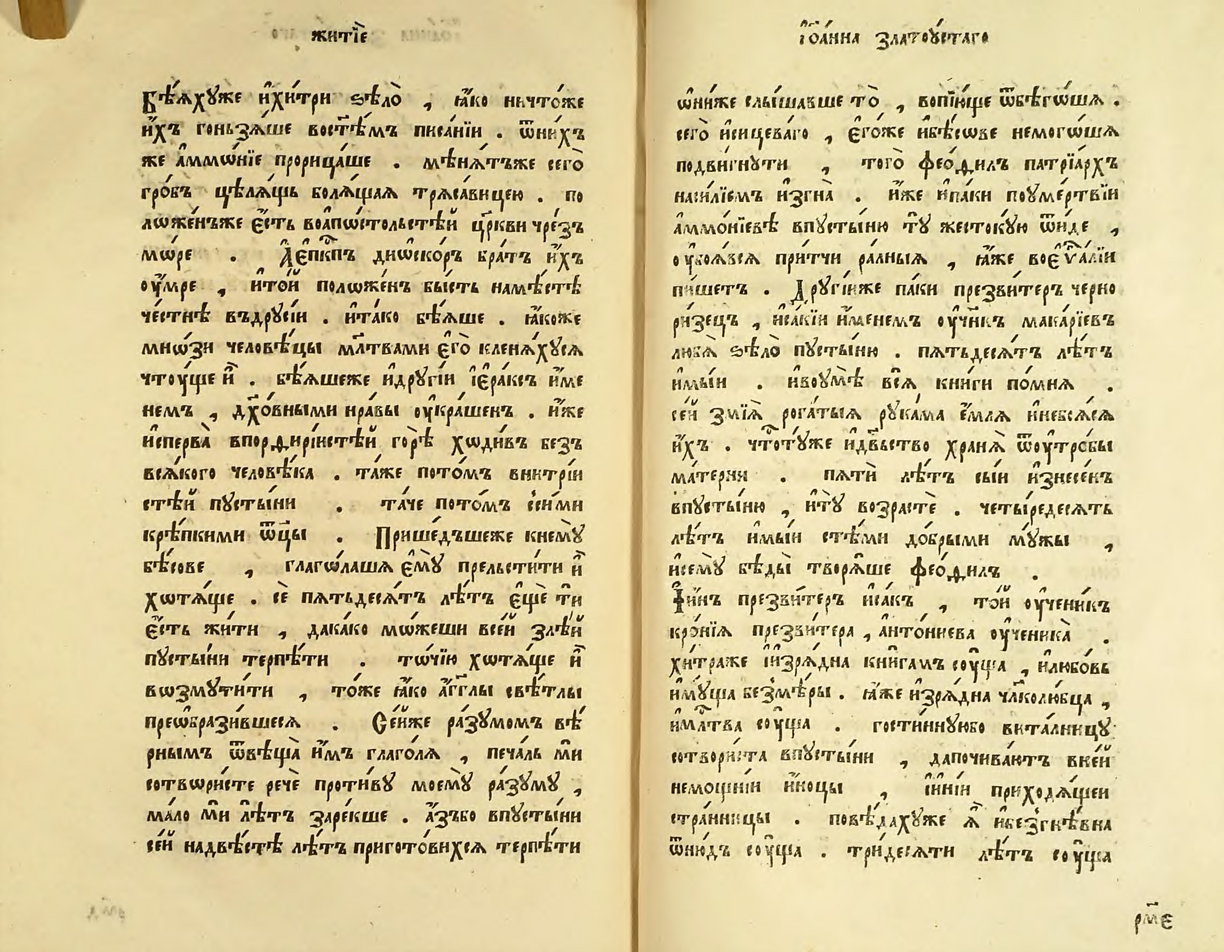 житїе
Бѣѧхуже и҆хи́три ѕѣло̀ , ꙗ҆́ко ничто́же
и҆́хъ гоньзѧ́ше восте́мъ писа́нїи . ѿни́хъ
же а҆ммѡ́нїе прорица́ше . мѣнѧ́тъже сего̀
гро́бъ цѣлѧ́щь болѧ́щаѧ трѧса́вицею . по
лѡже́нъже є҆́сть воа҆пѡстольстѣ́й цр҃кви чре́зъ
мо́ре . Де҆пⷭ҇кпъ дио́скоръ бра́тъ и҆́хъ
оу҆́мре , и҆то́й полѡже́нъ бы́сть намѣ́стѣ
че́стнѣ въдрусі́и . и҆та́ко бѣ́ѧше . ꙗ҆́коже
мно́зи человѣ́цы мл҃твами є҆го̀ кленѧ́хусѧ
чтоу́ще и҆̀ . бѣ́ѧшеже и҆други́и і҆е́раксъ и҆́ме
немъ , дх҃о́вными нра́вы оу҆кра́шен . и҆́же
и҆сперва̀ впорфирі́стѣй горѣ̀ хѡди́въ без̾
всѧ́кого человѣ́ка . та́же пото́мъ внитрі́и
стѣ́й пусты́ни . та́че пото́мъ сси́ми
крѣ́пкими ѿц҃ы . Прише́дъшеже кнемꙋ̀
бѣ́сове , глаго́лашѧ є҆мꙋ̀ прельсти́ти и҆̀
хотѧ́ще . сѐ пѧтьдесѧ́тъ лѣ́тъ є҆ще́ ти
є҆́сть жи́ти , дака́ко мо́жеши все́й зле́й
пусты́ни терпѣ́ти . то́чїю хотѧ́ще и҆̀
возмути́ти , то́же ꙗ҆́ко а҆́гг҃лы свѣ́тлы
преѡбрази́вшесѧ . Се́йже ра́зумомъ вѣ́
рнымъ ѿвѣща̀ и҆̀мъ глаго́лѧ , печа́ль ми́
сотвори́сте речѐ проти́вꙋ моемꙋ̀ ра́зумꙋ ,
ма́ло ми́ лѣ́тъ заре́кше . а҆́зъбо впусты́ни
се́й надвѣ́стѣ лѣ́тъ пригото́вихсѧ терпѣ́ти
і҆ѡа́нна златоу́стаго
ѡ҆ни́же слы́шавше то̀ , вопїю́ще ѿбѣго́шѧ .
сего̀ и҆сицева́го , є҆го́же и҆бѣ́сове немого́шѧ
подви́гнути , того̀ фео́филъ патрїа́рхъ
наси́лїемъ и҆згна̀ . и҆́же и҆па́ки поу҆ме́ртвїи
а҆ммо́нїевѣ впусты́ню тꙋ̀ жесто́кую ѿи́де ,
оу҆боѧ́всѧ при́тчи ра́лныѧ , ꙗ҆́же вое҆ѵⷢ҇а́лїи
пи́шетъ . Други́йже па́ки презви́теръ черно
ри́зецъ , и҆са́кїи и҆́менемъ оу҆чн҃къ мака́рїевъ
любѧ̀ ѕѣло̀ пусты́ню . пѧтьдесѧ́тъ лѣ́тъ
и҆мы́и . и҆воу҆мѣ̀ всѧ̀ кни́ги по́мнѧ .
се́й змі́ѧ рога́тыѧ рука́ма є҆́млѧ и҆небоѧ́сѧ
и҆́хъ . что́тꙋже и҆дв҃ьство хранѧ̀ ѿоу҆тро́бы
ма́терни . пѧтѝ лѣ́тъ сы́и и҆знесе́нъ
впусты́ню , и҆тꙋ̀ возрастѐ . четы́редесѧтъ
лѣ́тъ и҆мы́и стѣ́ми до́брыми мꙋжы̀ ,
и҆семꙋ̀ бѣ́ды творѧ́ше фео́филъ .
И҆́нъ презви́теръ и҆са́къ , то́й оу҆чени́къ
кро́нїѧ презви́тера , а҆нто́ниева оу҆ченика̀ .
хи́траже и҆изрѧ́дна кни́гамъ соу́ща , и҆любо́вь
и҆мꙋ́ща безмѣ́ры . ꙗ҆́же и҆зрѧ́дна чл҃колю́бца ,
и҆мл҃тва соу́ща . гости́ннуюбо вита́лницꙋ
сотвори́ста впусты́ни , дапочива́ютъ вне́й
немощні́и и҆́ноцы , и҆і҆ні́и приходѧ́щеи
стра́нницы . повѣ́дахꙋже ѧ҆̀ и҆безгнѣ́вна
ѿню́дъ соу́ща . три́десѧти лѣ́тъ соу́ща
рм҃е